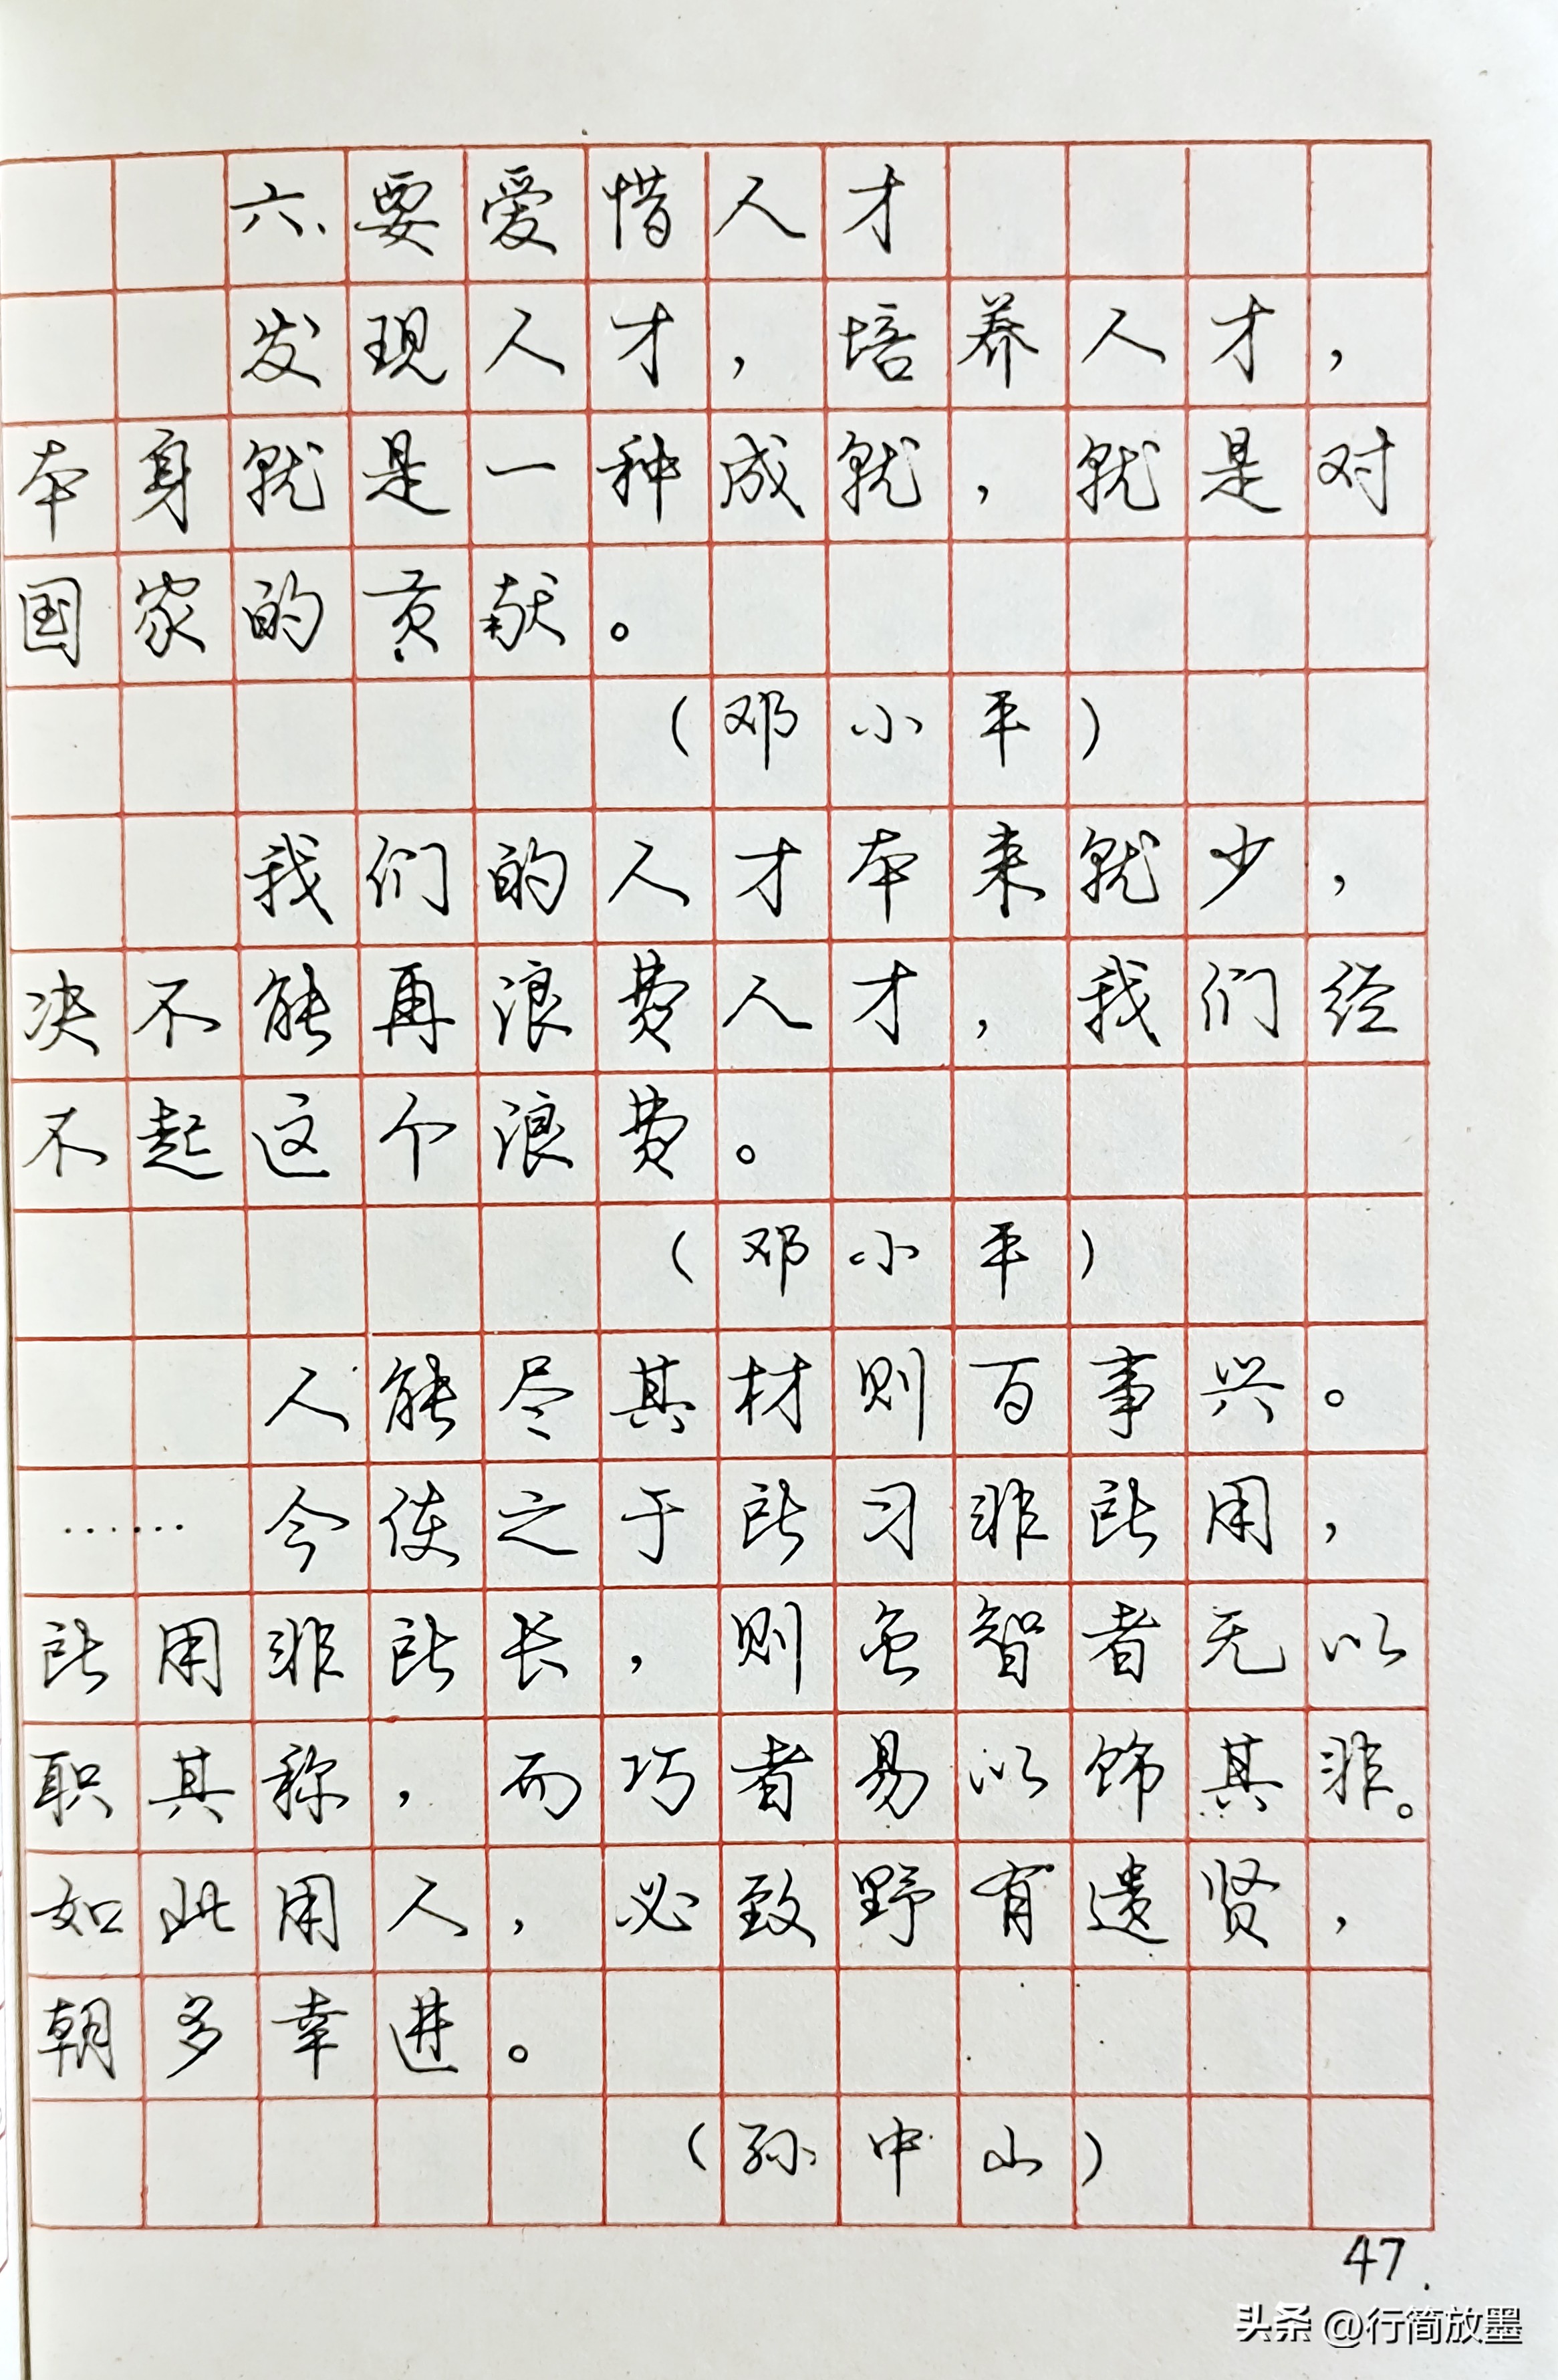 六、要爱惜人才
发现人才，培养人才，
本身就是一种成就，就是对
国家的贡献。
（邓小平）
我们的人才本来就少，
决不能再浪费人才，我们经
不起这个浪费。
（邓小平）
人能尽其材则百事兴。
……今使之于所习非所用，
所用非所长，则虽智者无以
职其称，而巧者易以饰其非。
如此用人，必致野有遗贤，
朝多幸进。
（孙中山）
47
头条@行简放墨